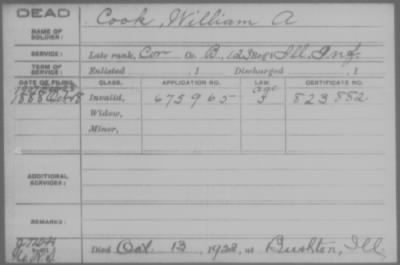 DEAD
NAME OF SOLDIER: Cook, William A
SERVICE: Late rank, Cor Co. B, 123 Regt Ill. Inf.
TERM OF SERVICE: Enlisted , 1 Discharged , 1
DATE OF FILING. CLASS. APPLICATION NO. LAW. CERTIFICATE NO.
1888 Invalid, 675965 age 823882
Widow,
Minor,
ADDITIONAL SERVICES:
REMARKS:
Died Oct 13, 1928, at Ill.